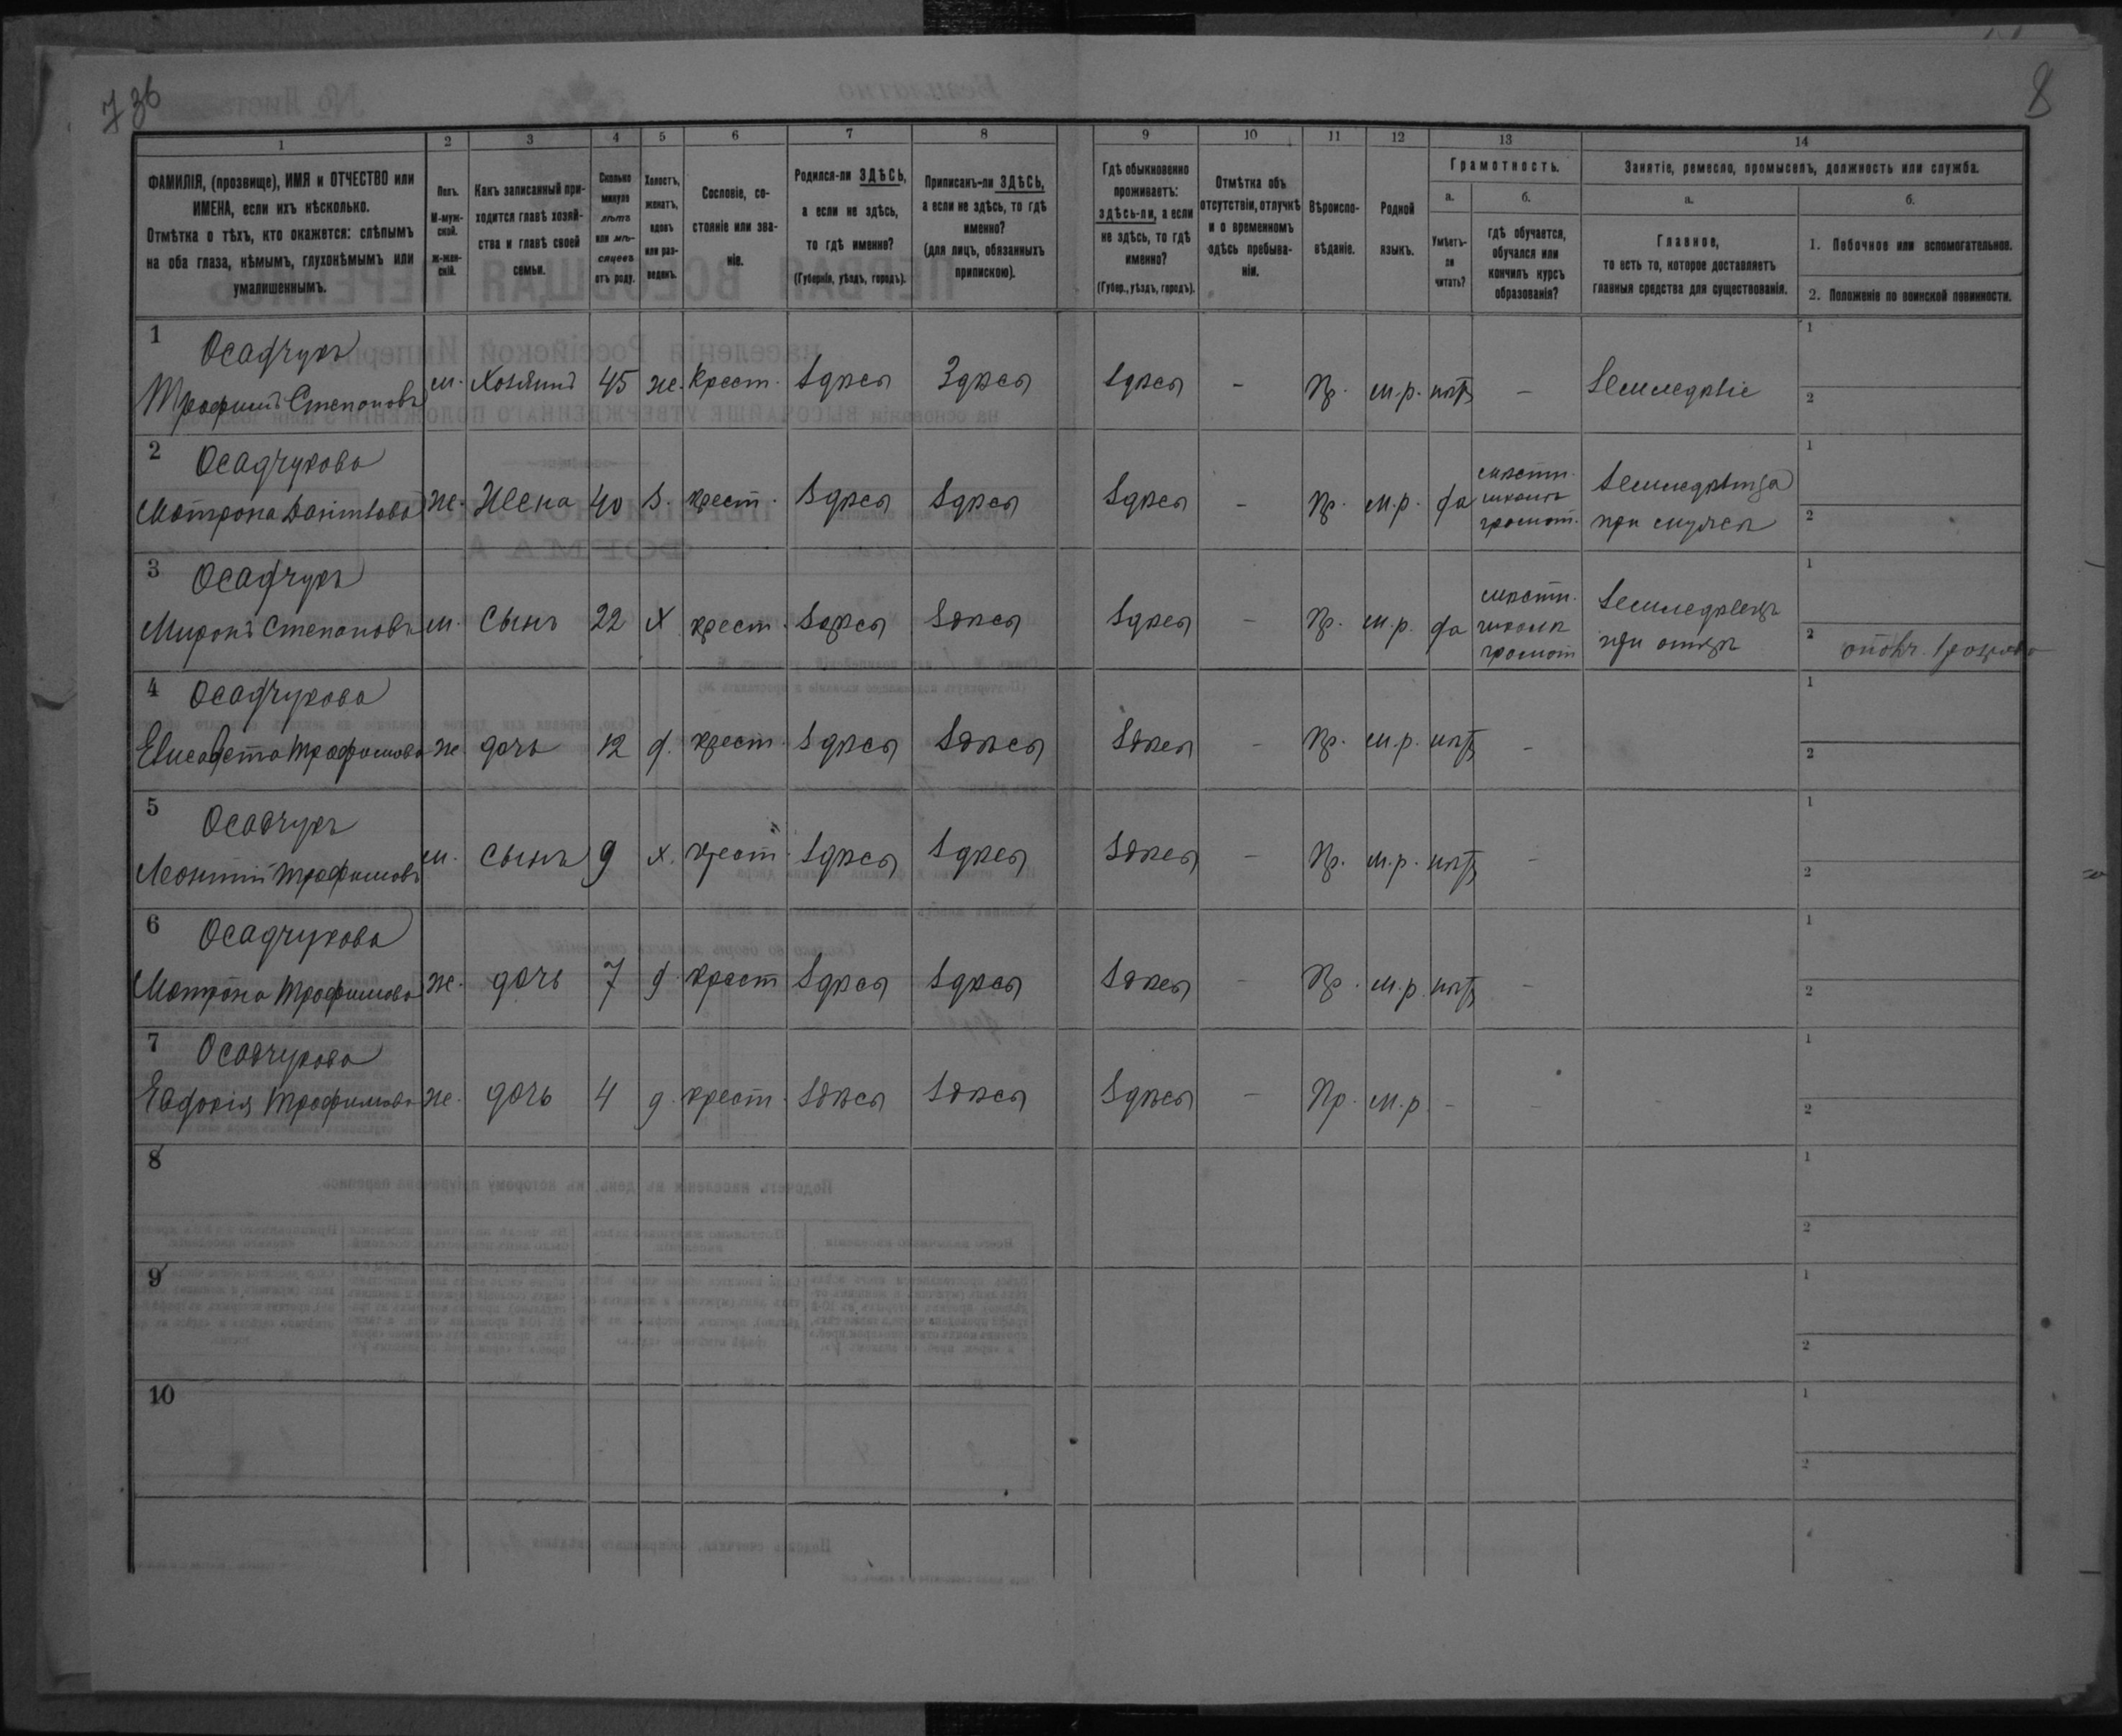 736
8
1 2 3 4 5 6 7 8 9 10 11 12 13 14
ФАМИЛІЯ, (прозвище), ИМЯ и ОТЧЕСТВО или
ИМЕНА, если ихъ нѣсколько.
Отмѣтка о тѣхъ, кто окажется: слѣпымъ
на оба глаза, нѣмымъ, глухонѣмымъ или
умалишеннымъ.
Полъ.
М-муж-
ской.
ж-жен-
скій.
Какъ записанный при-
ходится главѣ хозяй-
ства и главѣ своей
семьи.
Сколько
минуло
лѣтъ
или мѣ-
сяцевъ
отъ роду.
Холостъ,
женатъ,
вдовъ
или раз-
веденъ.
Сословіе, со-
стояніе или зва-
ніе.
Родился-ли ЗДѢСЬ,
а если не здѣсь,
то гдѣ именно?
(Губернія, уѣздъ, городъ).
Приписанъ-ли ЗДѢСЬ,
а если не здѣсь, то гдѣ
именно?
(для лицъ, обязанныхъ
припискою).
Гдѣ обыкновенно
проживаетъ:
здѣсь-ли, а если
не здѣсь, то гдѣ
именно?
(Губер., уѣздъ, городъ).
Отмѣтка объ
отсутствіи, отлучкѣ
и о временномъ
здѣсь пребыва-
ніи.
Вѣроиспо-
вѣданіе.
Родной
языкъ.
Грамотность.
а.
Умѣетъ-
ли
читать?
б.
гдѣ обучается,
обучался или
кончилъ курсъ
образованія?
Занятіе, ремесло, промыселъ, должность или служба.
а.
Главное,
то есть то, которое доставляетъ
главныя средства для существованія.
б.
1. Побочное или вспомогательное.
2. Положеніе по воинской повинности.
1 Осадчукъ
Трофимъ Степановъ м. Хозяинъ 45 ж. Крест. Здѣсь Здѣсь Здѣсь - Пр. м.р. нѣтъ - Земледѣліе
1
2
2 Осадчукова
Матрона ж. Жена 40 З. крест. Здѣсь Здѣсь Здѣсь - Пр. м.р. да
школѣ
грамот.
Земледѣлица
при мужѣ
1
2
3 Осадчукъ
Миронъ Степановъ м. Сынъ 22 х крест. Здѣсь Здѣсь Здѣсь - Пр. м.р. да
школѣ
грамот
Земледѣлецъ
при отцѣ
1
2 ополч. 1 разряда
4 Осадчукова
Елисавета Трофимова ж. дочь 12 д. крест. Здѣсь Здѣсь Здѣсь - Пр. м.р. нѣтъ -
1
2
5 Осадчукъ
Леонтій Трофимовъ м. сынъ 9 х. крест. Здѣсь Здѣсь Здѣсь - Пр. м.р. нѣтъ -
1
2
6 Осадчукова
Матрона Трофимова ж. дочь 7 д. крест Здѣсь Здѣсь Здѣсь - Пр. м.р. нѣтъ -
1
2
7 Осадчукова
Евдокія Трофимова ж. дочь 4 д. крест. Здѣсь Здѣсь Здѣсь - Пр. м.р. - - -
1
2
8
1
2
9
1
2
10
1
2